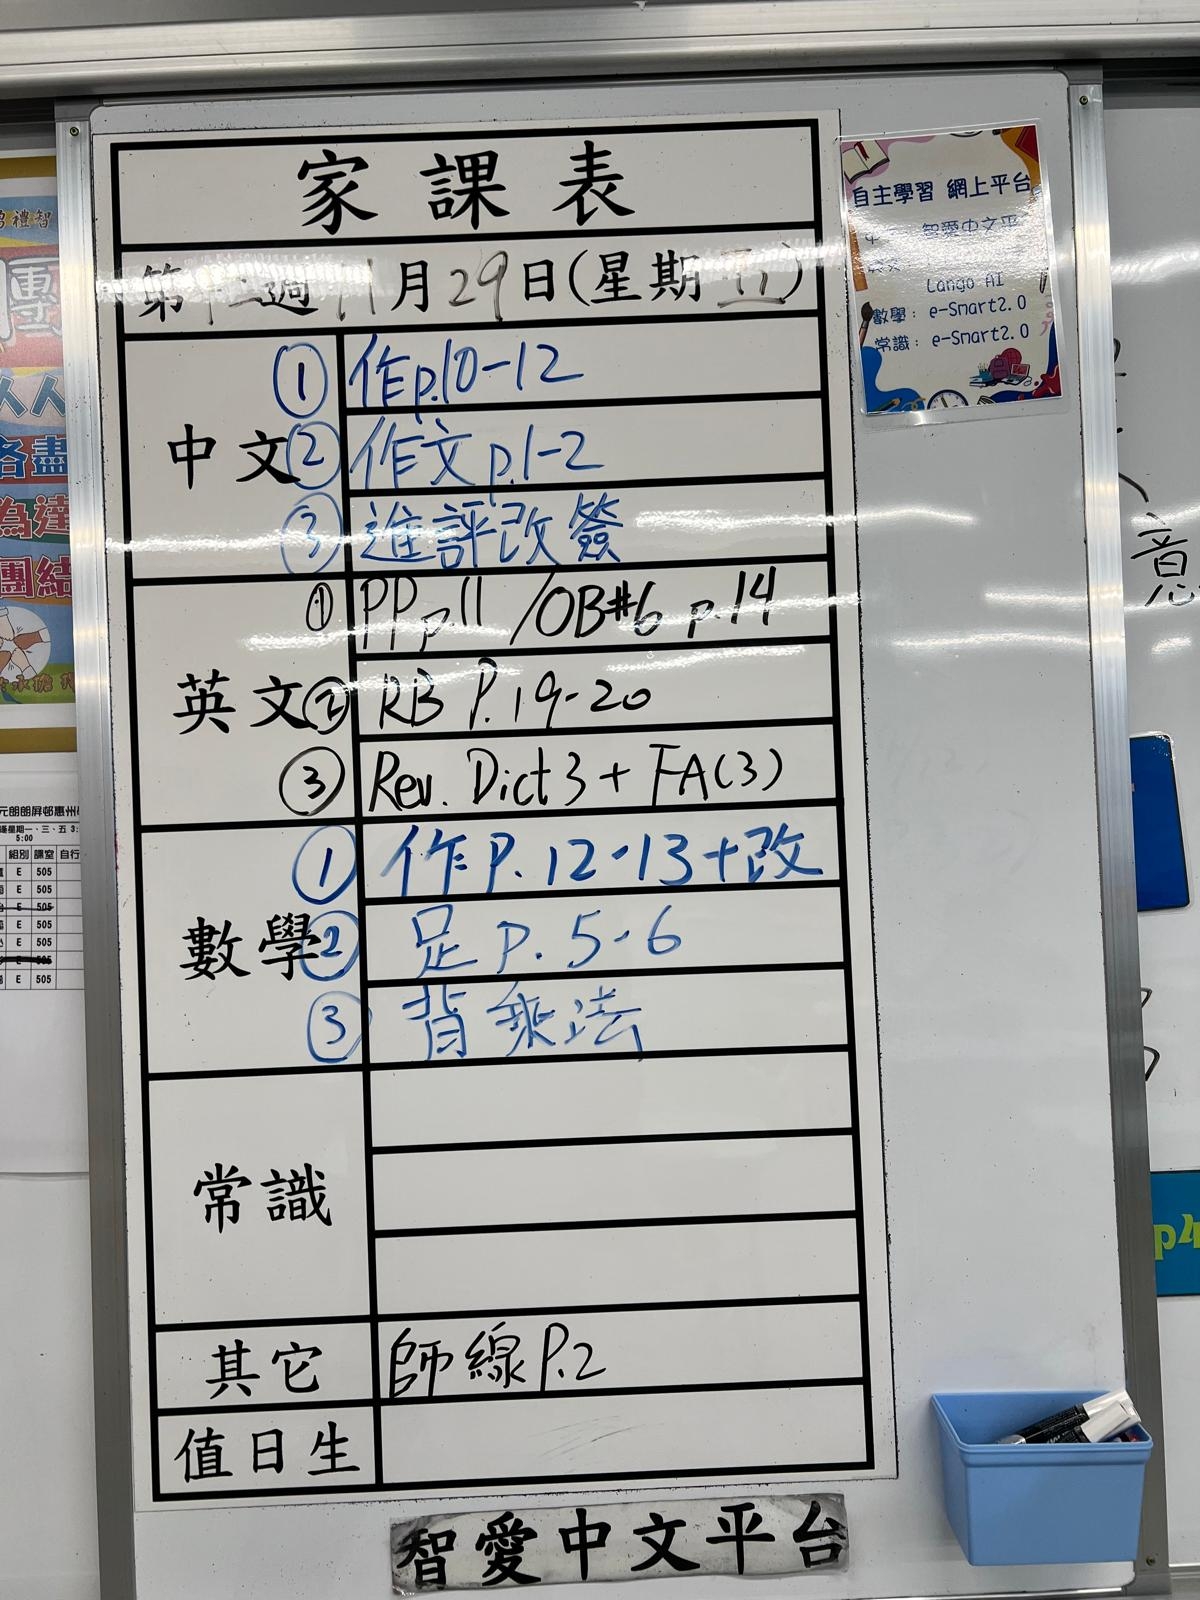 家課表
第十二週 11月29日(星期五)
中文
① 作p.10-12
② 作文p.1-2
③ 進評改簽
英文
① PP p.11 /OB#6 p.14
② RB P.19-20
③ Rev. Dict 3 + FA(3)
數學
① 作P.12-13+改
② 足P.5-6
③ 背乘法
常識
其它
師線P.2
值日生
智愛中文平台
自主學習 網上平台
智愛中文平
Lango AI
數學：e-Smart2.0
常識：e-Smart2.0
禮智
團
人人
各盡
為達
團結
元朗朗屏邨惠州
星期一、三、五 3:
5:00
組別 課室 自行
E 505
E 505
E 505
E 505
E 505
E 505
E 505
意
p4